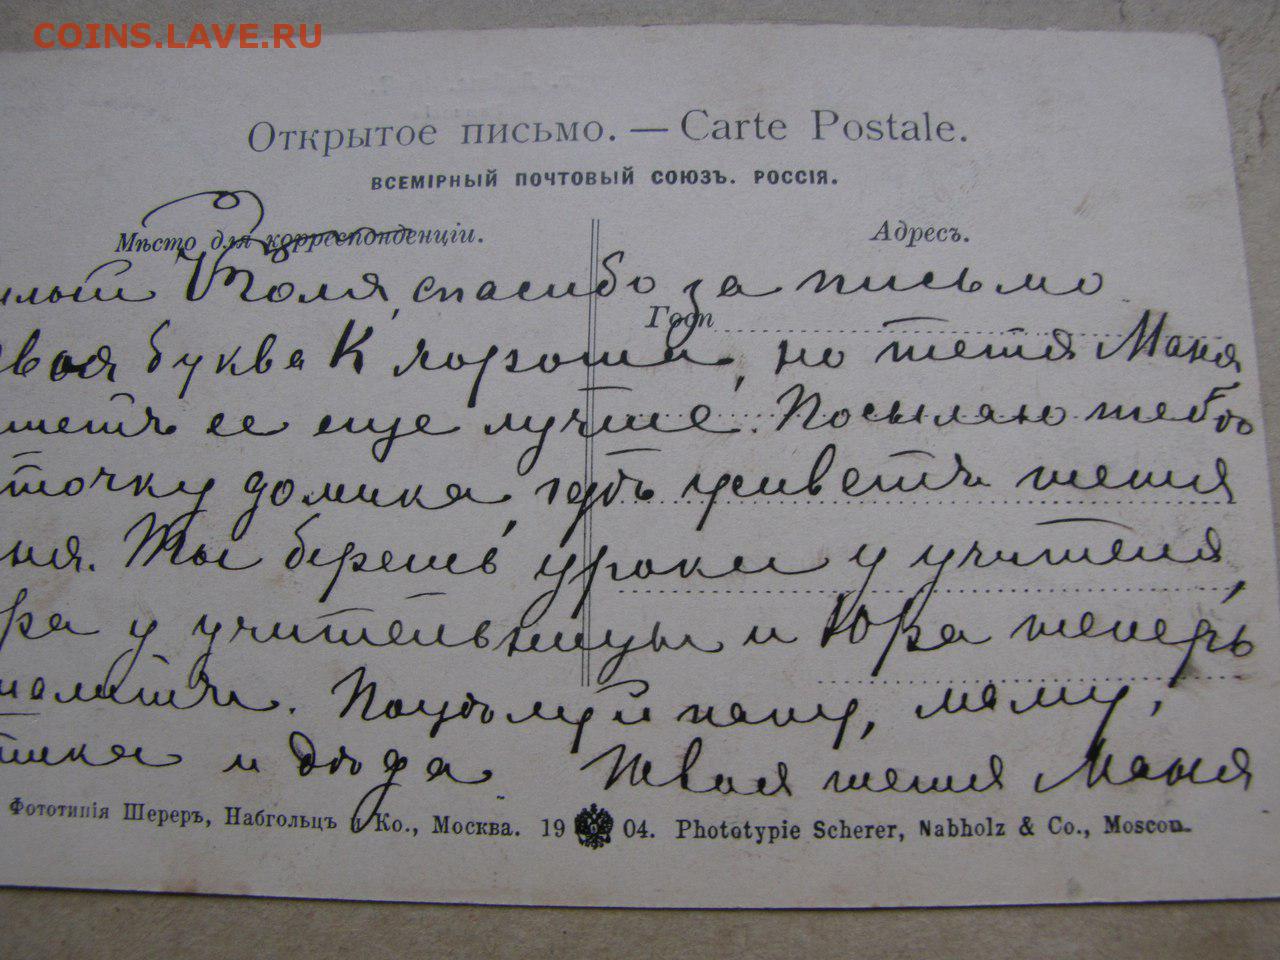 COINS.LAVE.RU
Открытое письмо. — Carte Postale.
ВСЕМІРНЫЙ ПОЧТОВЫЙ СОЮЗЪ. РОССІЯ.
Мѣсто для корреспонденціи. Адресъ.
илый Коля, спасибо за письмо
Госп
воя буква К хороша, но тетя Маня
шетъ ее еще лучше. Посылаю тебѣ
точку домика, гдѣ живетъ тетя
ня. Ты берешь уроки у учителя,
ра у учительницы и Юра теперь
шалитъ. Поцѣлуй папу, маму,
тика и дѣда Твоя тетя Маня
Фототипія Шереръ, Набгольцъ и Ко., Москва. 1904. Phototypie Scherer, Nabholz & Co., Moscou.